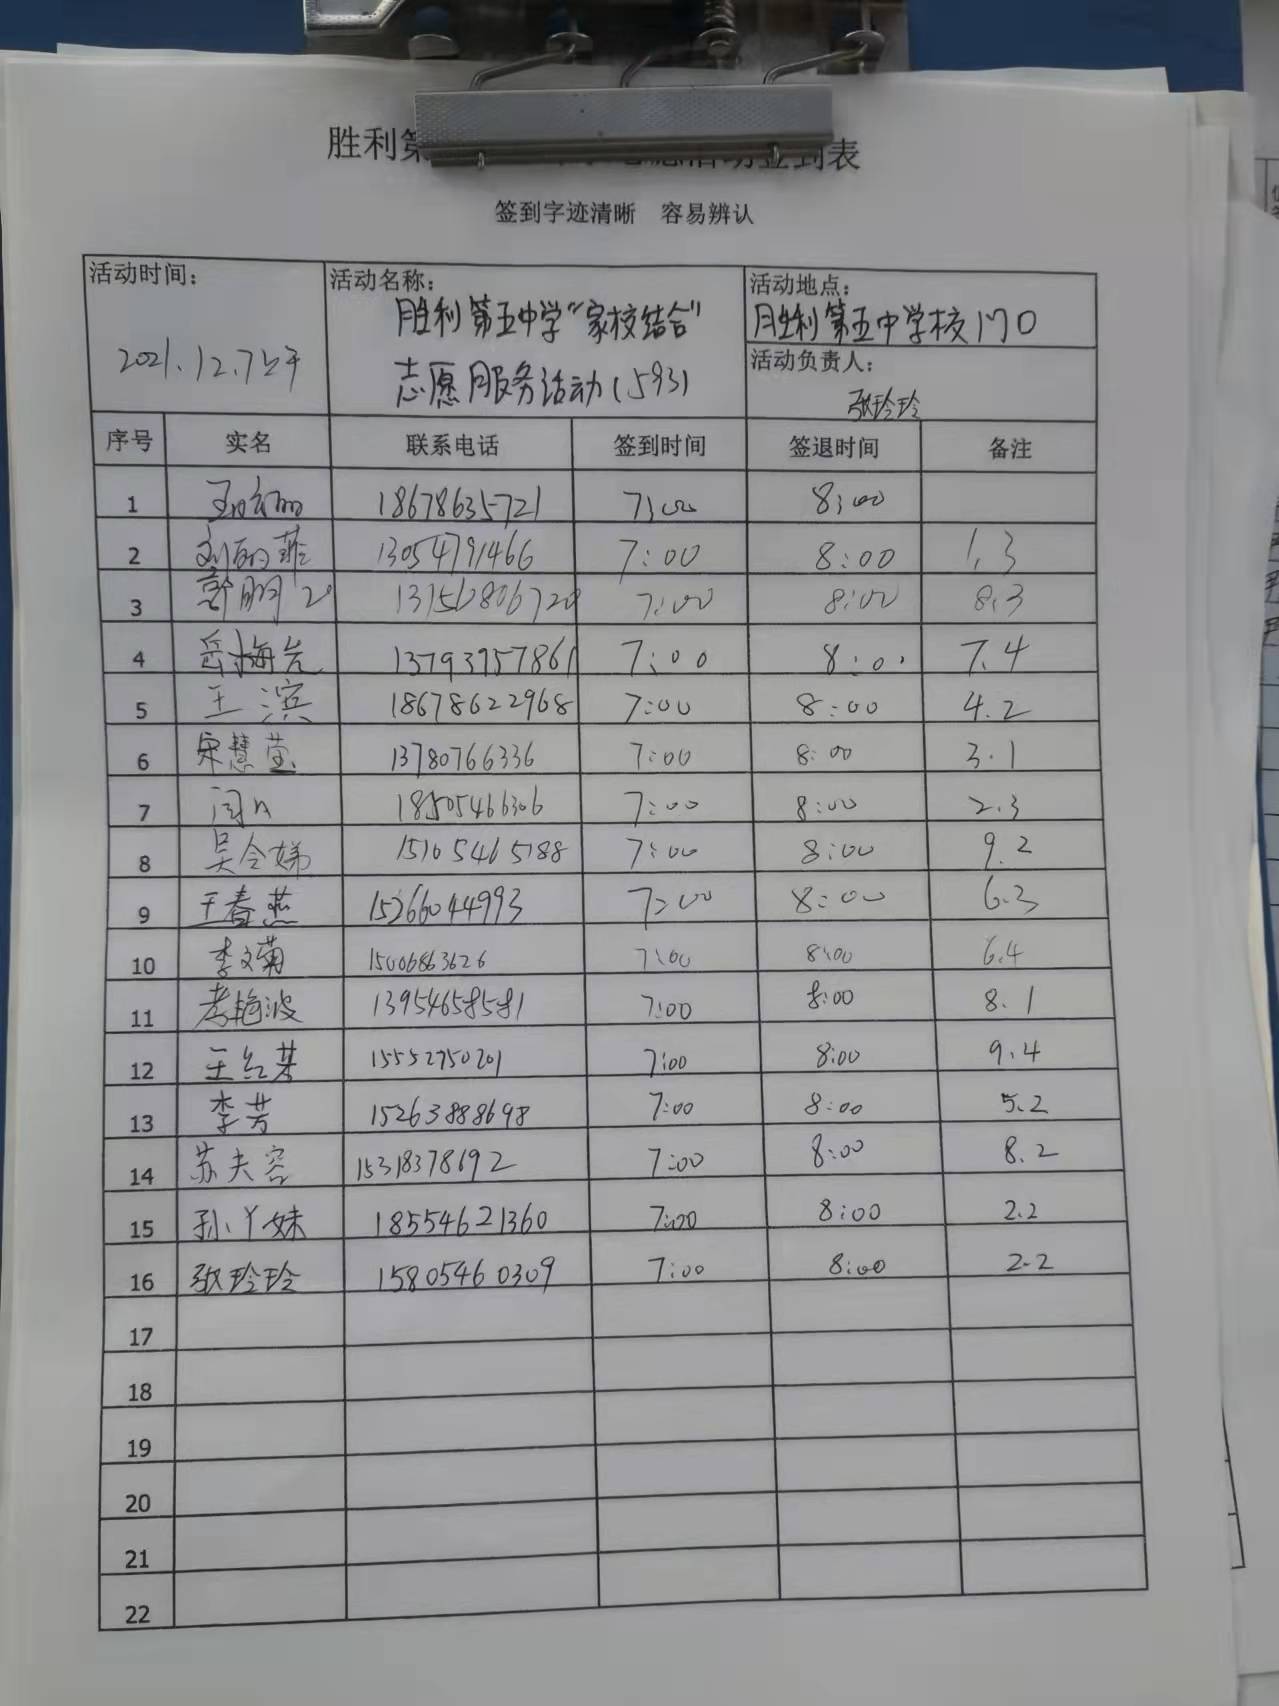 胜利第 志愿活动签到表
签到字迹清晰 容易辨认
活动时间： 活动名称： 活动地点：
胜利第五中学“家校结合” 胜利第五中学校门口
2021.12.7上午 志愿服务活动(593) 活动负责人：
张玲玲
序号 实名 联系电话 签到时间 签退时间 备注
1 18678635721 7:00 8:00
2 刘丽菲 13054791466 7:00 8:00 1.3
3 7:00 8:00 8.3
4 岳梅岩 13793957861 7:00 8:00 7.4
5 王滨 18678622968 7:00 8:00 4.2
6 宋慧莹 13780766336 7:00 8:00 3.1
7 18505466306 7:00 8:00 2.3
8 吴令娣 15105465188 7:00 8:00 9.2
9 王春燕 15266044993 7:00 8:00 6.3
10 李文菊 15006863626 7:00 8:00 6.4
11 考艳波 13954658581 7:00 8:00 8.1
12 王红某 15552750201 7:00 8:00 9.4
13 李芳 15263888698 7:00 8:00 5.2
14 苏夫容 15318378692 7:00 8:00 8.2
15 孙丫妹 18554621360 7:00 8:00 2.2
16 张玲玲 15805460309 7:00 8:00 2.2
17
18
19
20
21
22